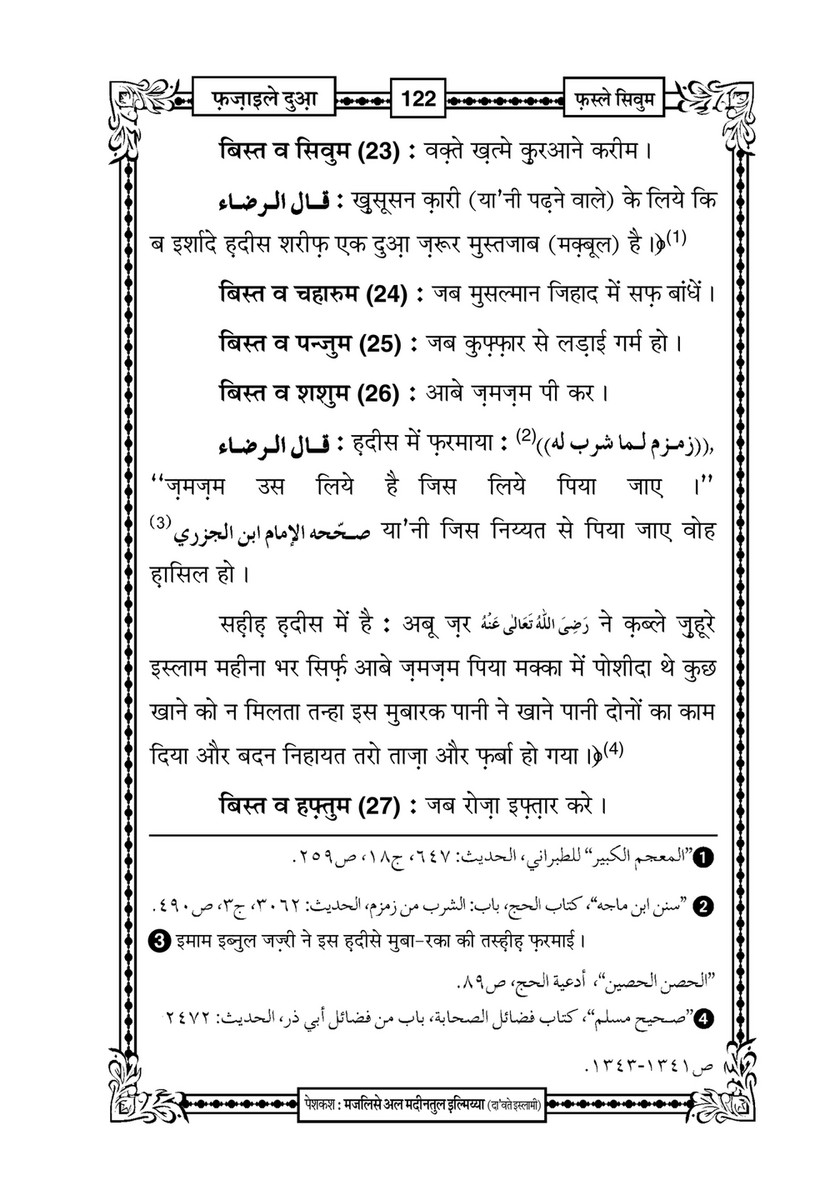 फ़ज़ाइले दुआ़
122
फ़स्ले सिवुम
बिस्त व सिवुम (23) : वक़्ते ख़त्मे क़ुरआने करीम ।
قال الرضاء : ख़ुसूसन क़ारी (या’नी पढ़ने वाले) के लिये कि
ब इर्शादे ह़दीस शरीफ़ एक दुआ़ ज़रूर मुस्तजाब (मक़्बूल) है ।﴿(1)
बिस्त व चहारुम (24) : जब मुसल्मान जिहाद में सफ़ बांधें ।
बिस्त व पन्जुम (25) : जब कुफ़्फ़ार से लड़ाई गर्म हो ।
बिस्त व शशुम (26) : आबे ज़मज़म पी कर ।
قال الرضاء : ह़दीस में फ़रमाया : (2)((زمزم لما شرب له)),
‘‘ज़मज़म उस लिये है जिस लिये पिया जाए ।’’
(3)صحّحه الإمام ابن الجزري या’नी जिस निय्यत से पिया जाए वोह
ह़ासिल हो ।
सह़ीह़ ह़दीस में है : अबू ज़र رَضِیَ اللّٰہُ تَعَالٰی عَنْہُ ने क़ब्ले ज़ुहूरे
इस्लाम महीना भर सिर्फ़ आबे ज़मज़म पिया मक्का में पोशीदा थे कुछ
खाने को न मिलता तन्हा इस मुबारक पानी ने खाने पानी दोनों का काम
दिया और बदन निहायत तरो ताज़ा और फ़र्बा हो गया ।﴿(4)
बिस्त व हफ़्तुम (27) : जब रोज़ा इफ़्त़ार करे ।
❶”المعجم الكبير“ للطبراني، الحديث: ٦٤٧، ج١٨، ص٢٥٩.
❷ ”سنن ابن ماجه“، كتاب الحج، باب: الشرب من زمزم، الحديث: ٣٠٦٢، ج٣، ص٤٩٠.
❸ इमाम इब्नुल जज़्री ने इस ह़दीसे मुबा-रका की तस्ह़ीह़ फ़रमाई ।
”الحصن الحصين“، أدعية الحج، ص٨٩.
❹”صحيح مسلم“، كتاب فضائل الصحابة، باب من فضائل أبي ذر، الحديث: ٢٤٧٢
ص١٣٤١-١٣٤٣.
पेशकश : मजलिसे अल मदीनतुल इल्मिय्या (दा'वते इस्लामी)